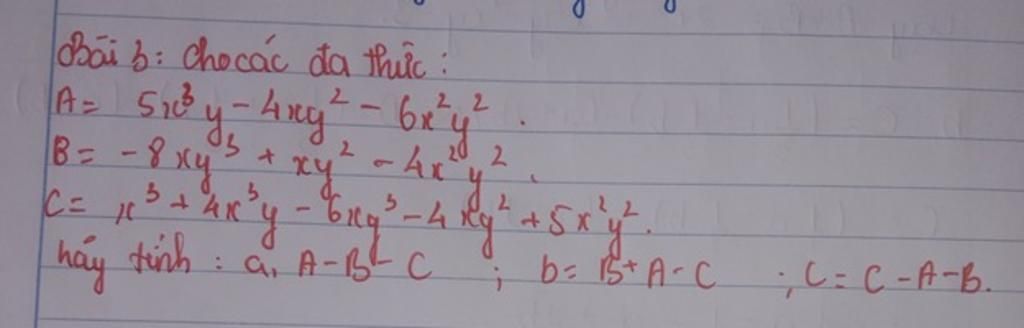 Bài 3: Cho các đa thức:
A = 5x³y - 4xy² - 6x²y².
B = -8xy³ + xy² - 4x²y².
C = x³ + 4x³y - 6xy³ - 4xy² + 5x²y².
hãy tính: a, A - B - C ; b = B + A - C ; C = C - A - B.